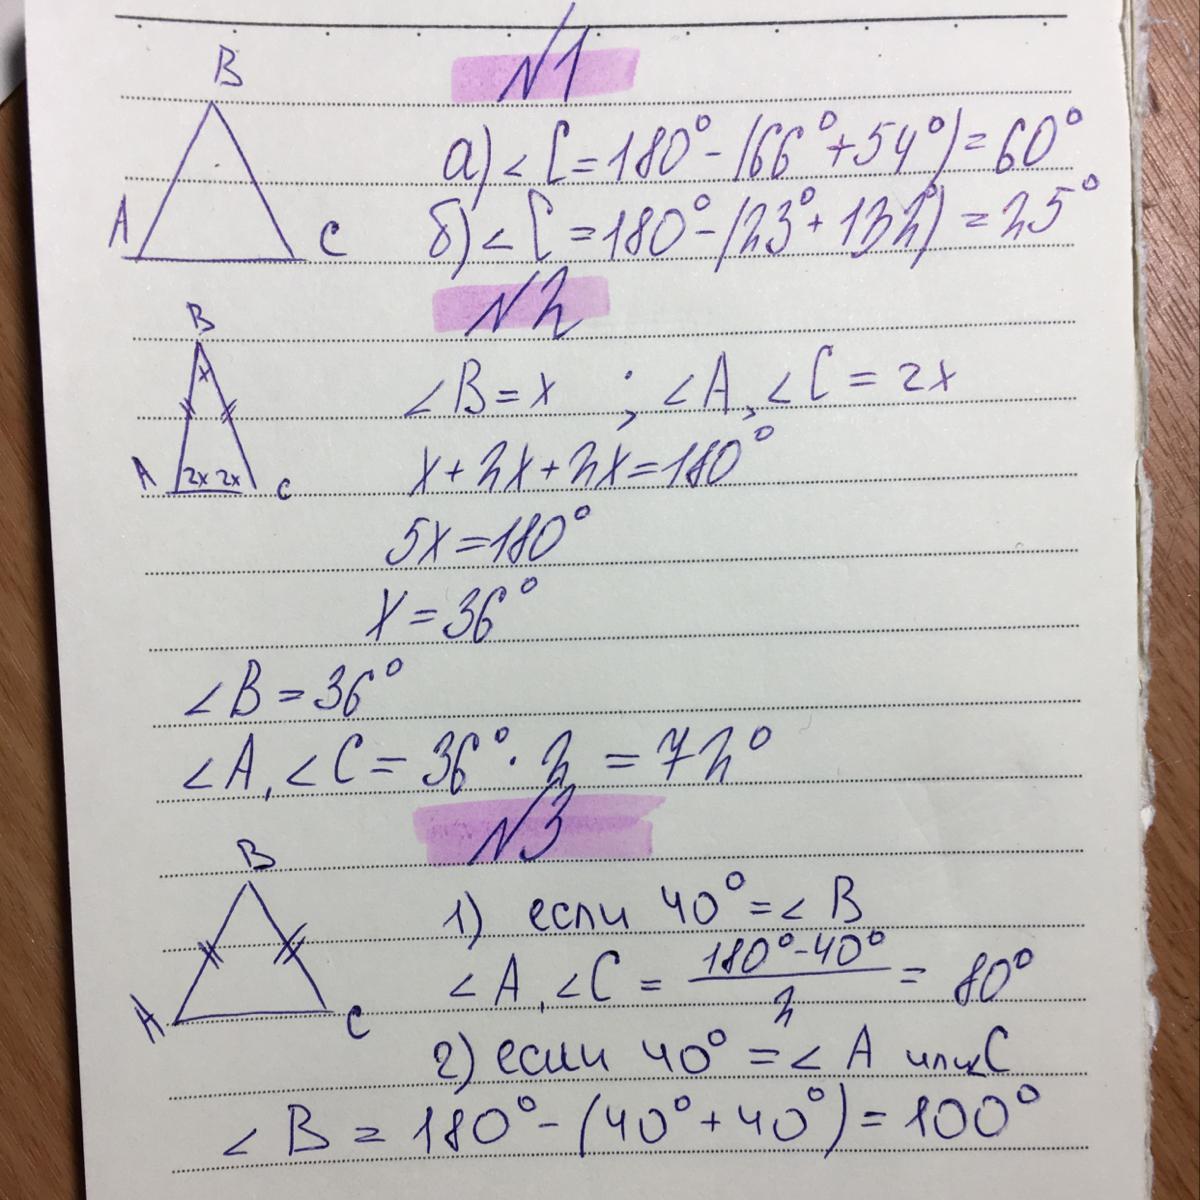 №1
B
A
C
а) ∠C = 180° - (66° + 54°) = 60°
б) ∠C = 180° - (23° + 132°) = 25°
№2
B
x
A
2x 2x
C
∠B = x ; ∠A, ∠C = 2x
x + 2x + 2x = 180°
5x = 180°
x = 36°
∠B = 36°
∠A, ∠C = 36° · 2 = 72°
№3
B
A
C
1) если 40° = ∠B
∠A, ∠C = (180° - 40°)/2 = 80°
2) если 40° = ∠A или ∠C
∠B = 180° - (40° + 40°) = 100°